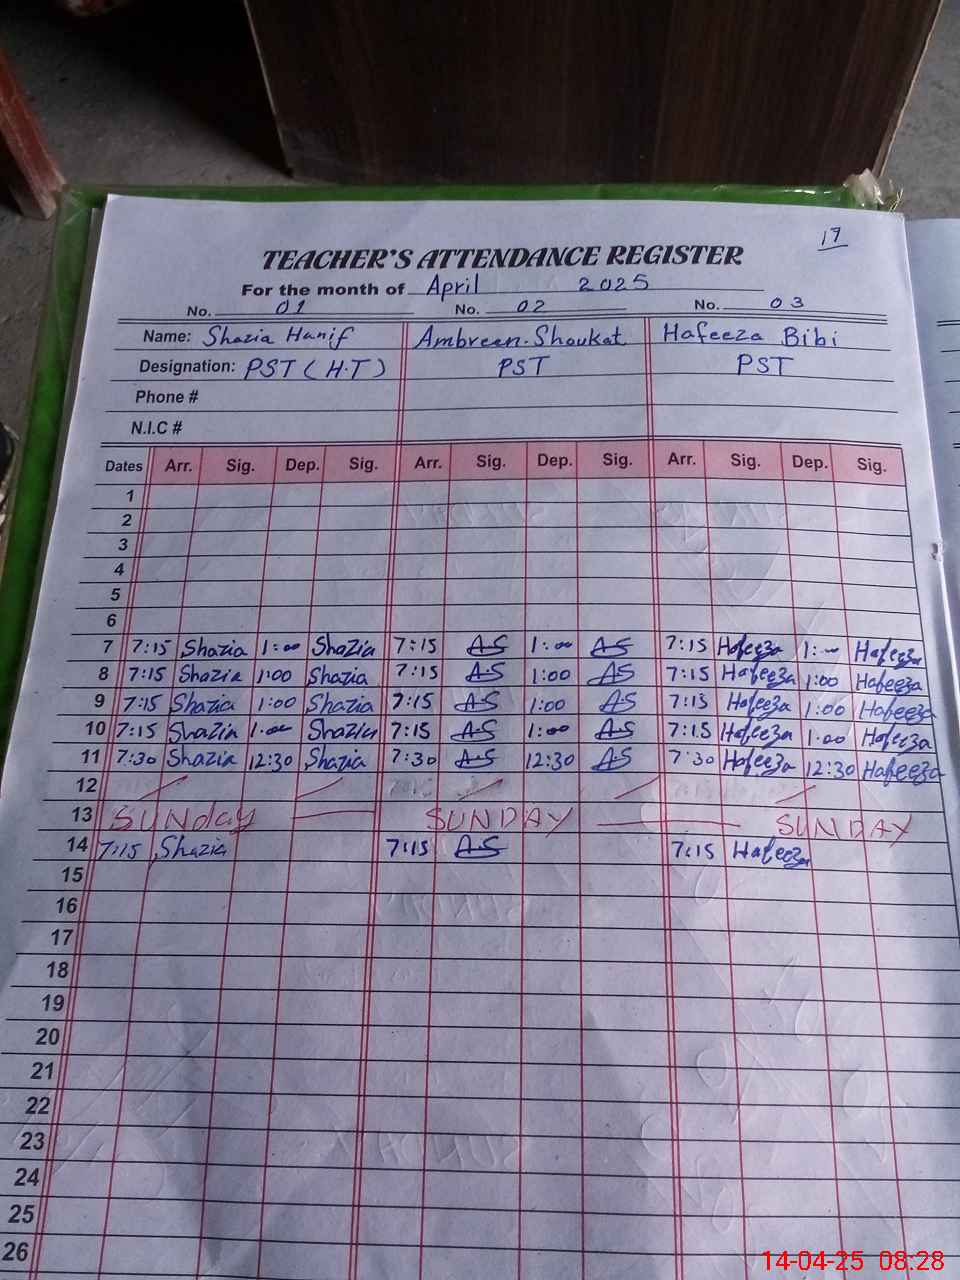 17
TEACHER'S ATTENDANCE REGISTER
For the month of April 2025
No. 01 No. 02 No. 03
Name: Shazia Hanif Ambreen Shoukat Hafeeza Bibi
Designation: PST (H.T) PST PST
Phone #
N.I.C #
Dates Arr. Sig. Dep. Sig. Arr. Sig. Dep. Sig. Arr. Sig. Dep. Sig.
1
2
3
4
5
6
7 7:15 Shazia 1:00 Shazia 7:15 AS 1:00 AS 7:15 Hafeeza 1:00 Hafeeza
8 7:15 Shazia 1:00 Shazia 7:15 AS 1:00 AS 7:15 Hafeeza 1:00 Hafeeza
9 7:15 Shazia 1:00 Shazia 7:15 AS 1:00 AS 7:15 Hafeeza 1:00 Hafeeza
10 7:15 Shazia 1:00 Shazia 7:15 AS 1:00 AS 7:15 Hafeeza 1:00 Hafeeza
11 7:30 Shazia 12:30 Shazia 7:30 AS 12:30 AS 7:30 Hafeeza 12:30 Hafeeza
12
13 SUNdaY SUNDAY SUNDAY
14 7:15 Shazia 7:15 AS 7:15 Hafeeza
15
16
17
18
19
20
21
22
23
24
25
26
14-04-25 08:28